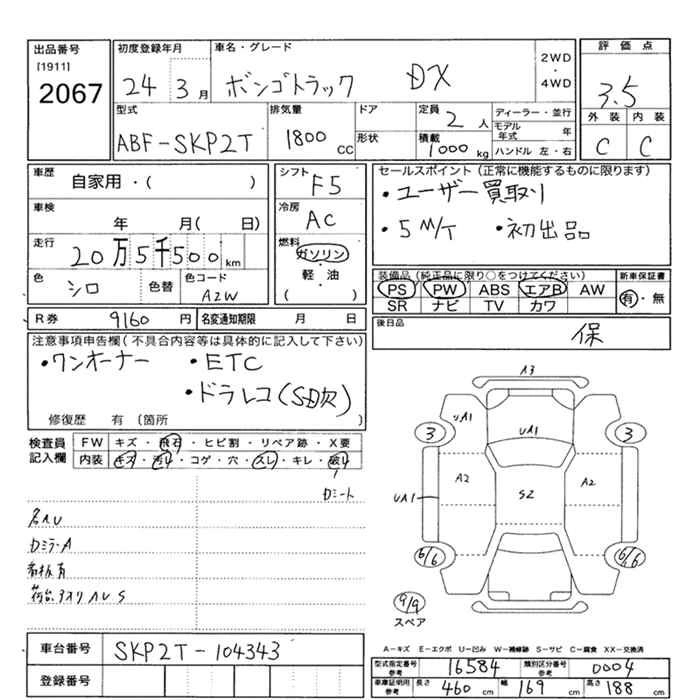 出品番号
[1911]
2067
初度登録年月
24 3月
車名・グレード
ボンゴトラック DX
2WD
・
4WD
評価点
3.5
外装 内装
C C
型式
ABF-SKP2T
排気量
1800 CC
ドア
形状
定員
2人
積載
1000kg
ディーラー・並行
モデル年式 年
ハンドル 左・右
車歴
自家用・( )
車検
年 月( 日)
走行
20万5千500km
色
シロ
色替
色コード
A2W
シフト
F5
冷房
AC
燃料
ガソリン
・
軽・油
( )
セールスポイント(正常に機能するものに限ります)
・ユーザー買取り
・5M/T ・初出品
装備品(純正品に限り○をつけてください)
PS PW ABS エアB AW
SR ナビ TV カワ
新車保証書
有・無
R券 9160円
名変通知期限 月 日
後日品
保
注意事項申告欄(不具合内容等は具体的に記入して下さい)
・ワンオーナー ・ETC
・ドラレコ(SD欠)
修復歴 有 〔箇所
検査員
記入欄
FW キズ・飛石・ヒビ割・リペア跡・X要
内装 キズ・汚れ・コゲ・穴・スレ・キレ・破れ
Dミラー A
看板有
荷台アオリ AUS
A3
UA1
UA1
3
3
A2
S2
A2
UA1
6/6
6/6
9/9
スペア
A-キズ E-エクボ U-凹み W-補修跡 S-サビ C-腐食 XX-交換済
車台番号 SKP2T-104343
登録番号
型式指定番号
参考
16584
類別区分番号
参考
0004
車庫証明用
参考
長さ 460 cm
幅 169 cm
高さ 188 cm